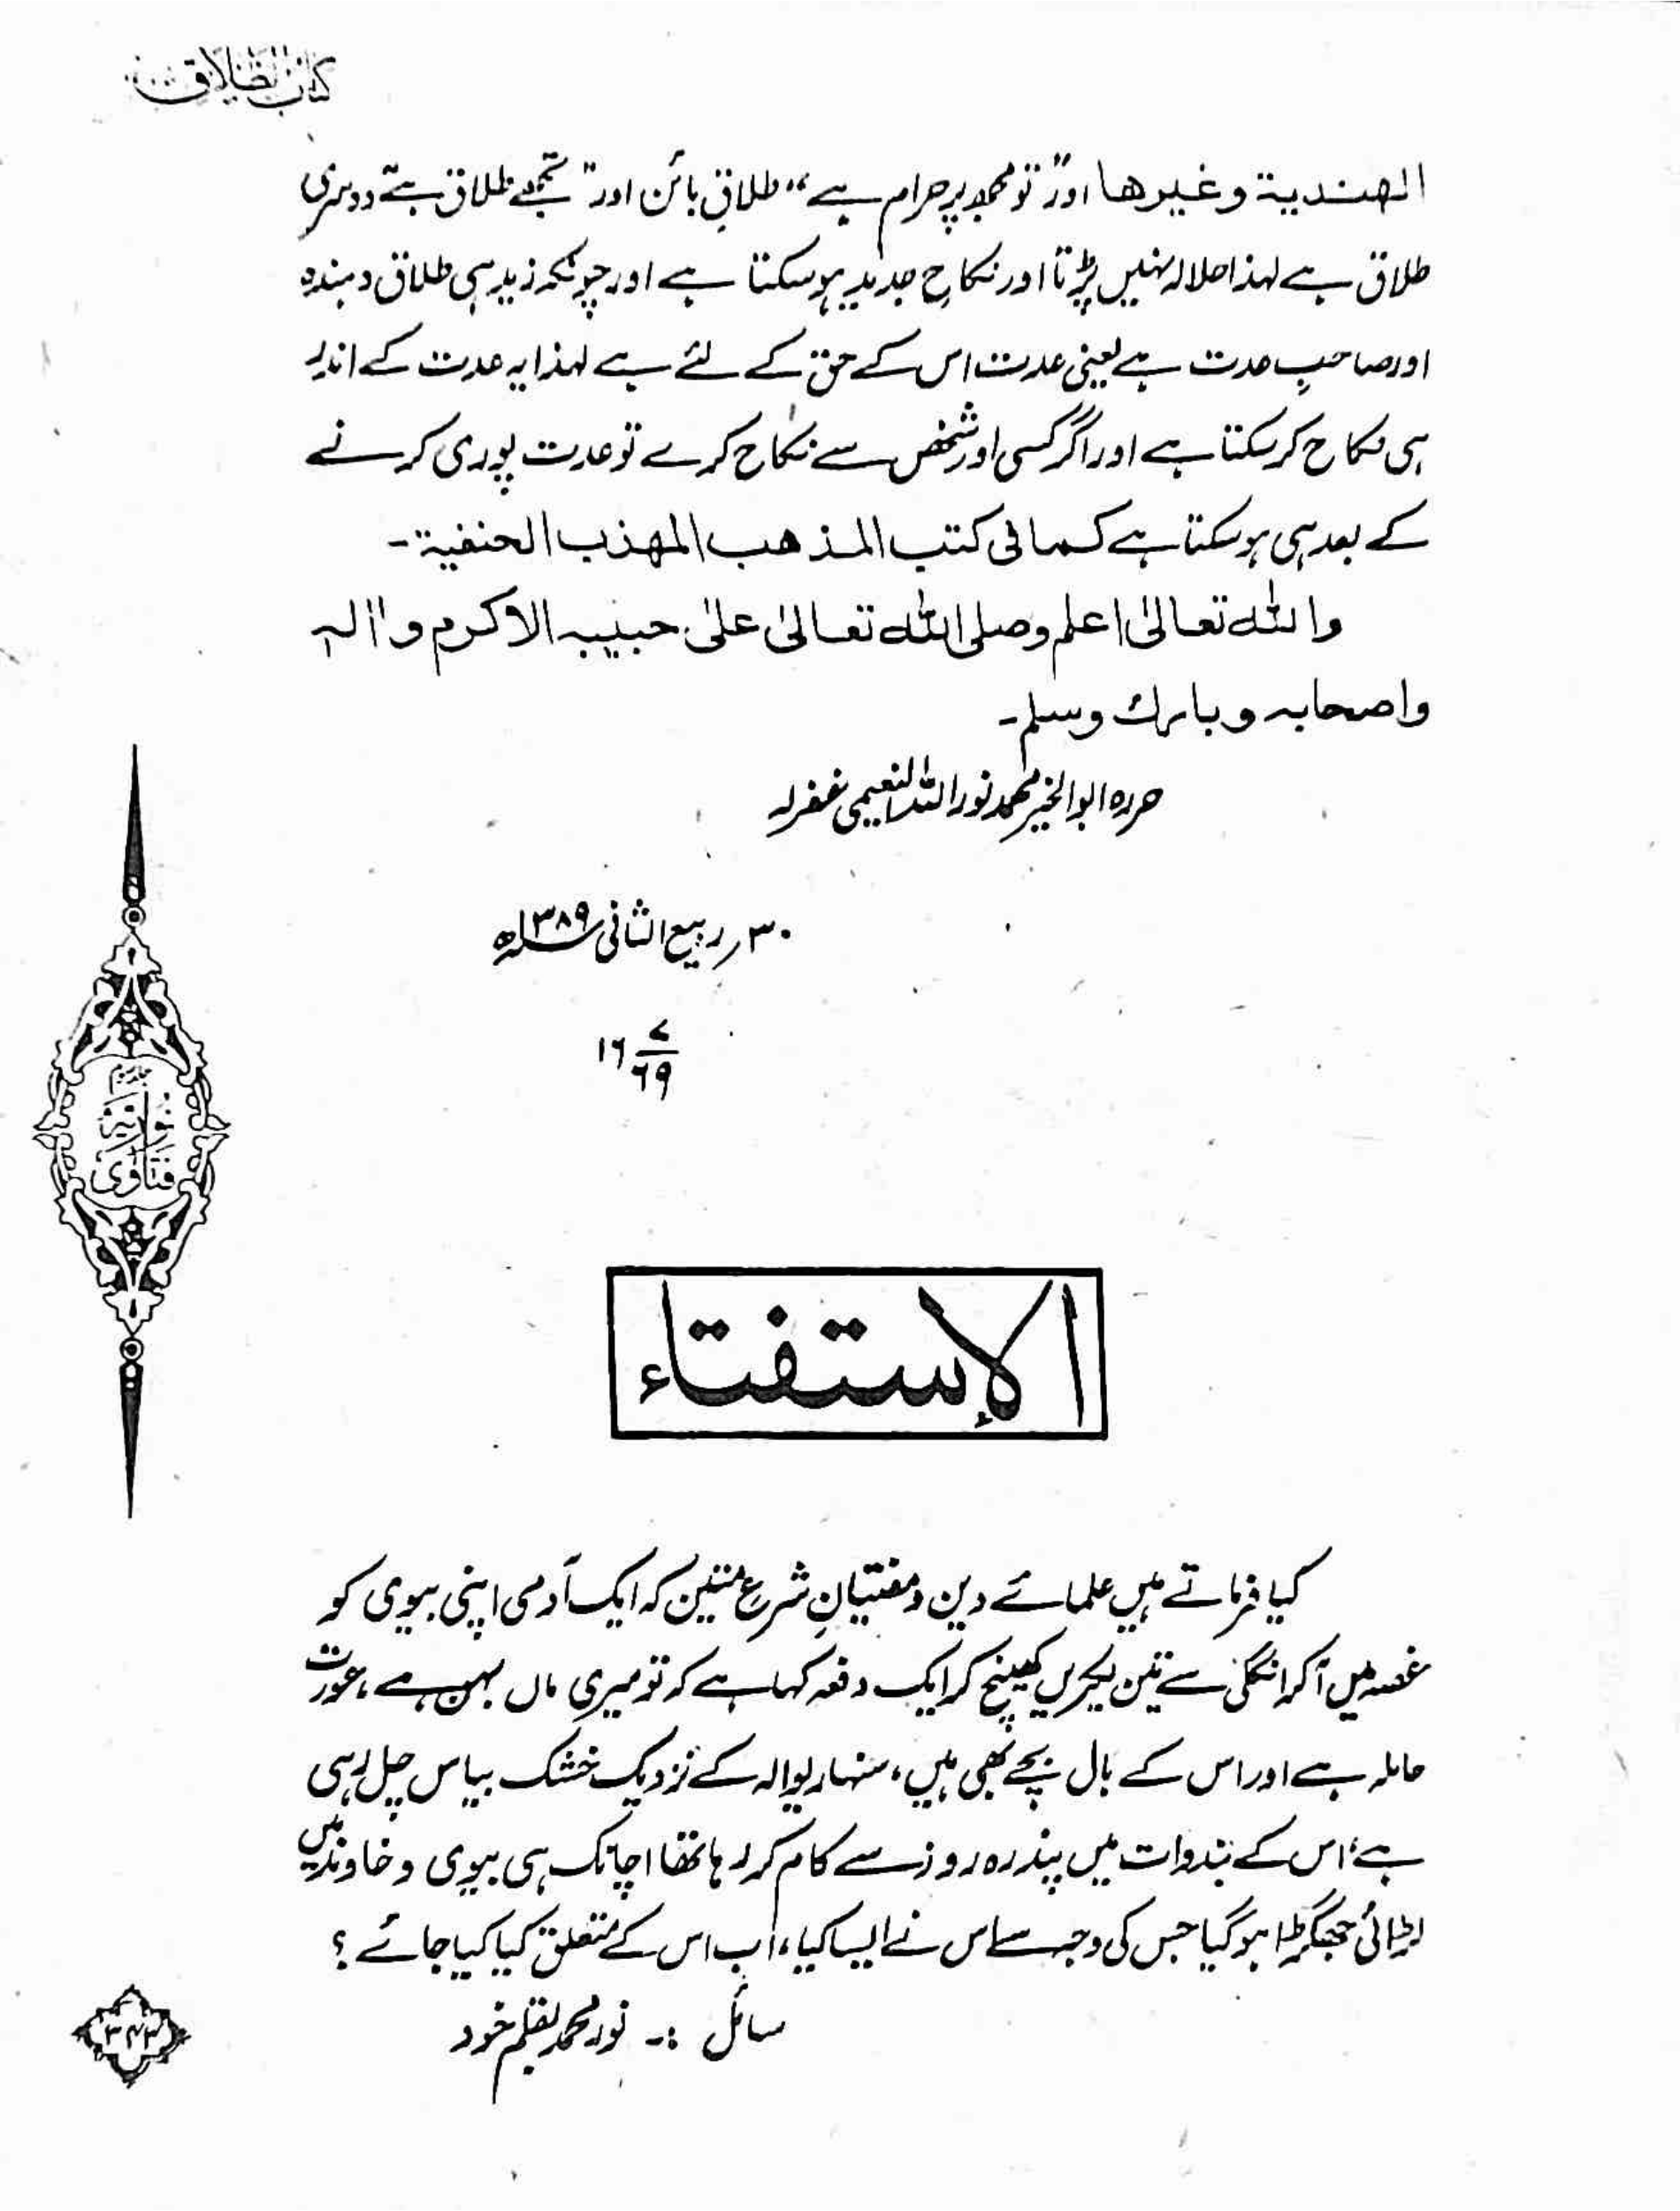 کتاب الطلاق
الھندیة وغیرھا اور ”تو مجھ پر حرام ہے“ طلاقِ بائن اور ”تجھے طلاق ہے“ دوسری
طلاق ہے لہذا حلالہ نہیں پڑتا اور نکاحِ جدید ہو سکتا ہے اور چونکہ زید ہی طلاق دہندہ
اور صاحبِ عدت ہے یعنی عدت اس کے حق کے لئے ہے لہذا یہ عدت کے اندر
ہی نکاح کر سکتا ہے اور اگر کسی اور شخص سے نکاح کرے تو عدت پوری کرنے
کے بعد ہی ہو سکتا ہے کما فی کتب المذھب المھذب الحنفیة۔
واللہ تعالیٰ اعلم وصلی اللہ تعالیٰ علیٰ حبیبہ الاکرم واٰلہ
واصحابہ وبارك وسلم۔
حررہ ابوالخیر محمد نور اللہ النعیمی غفرلہ
۳۰؍ ربیع الثانی ۱۳۸۹ھ
۱۶ ۷/۶۹
جلد سوم
نوریہ
فتاویٰ
الإستفتاء
کیا فرماتے ہیں علمائے دین و مفتیانِ شرع متین کہ ایک آدمی اپنی بیوی کو
غصہ میں آکر انگلی سے تین لکیریں کھینچ کر ایک دفعہ کہا ہے کہ تو میری ماں بہن ہے، عورت
حاملہ ہے اور اس کے بال بچے بھی ہیں، کے نزدیک خشک بیاس چل رہی
ہے، اس کے میں پندرہ روز سے کام کر رہا تھا اچانک ہی بیوی و خاوند میں
لڑائی جھگڑا ہو گیا جس کی وجہ سے اس نے ایسا کیا، اب اس کے متعلق کیا کیا جائے ؟
سائل :۔ نور محمد بقلم خود
۳۴۳